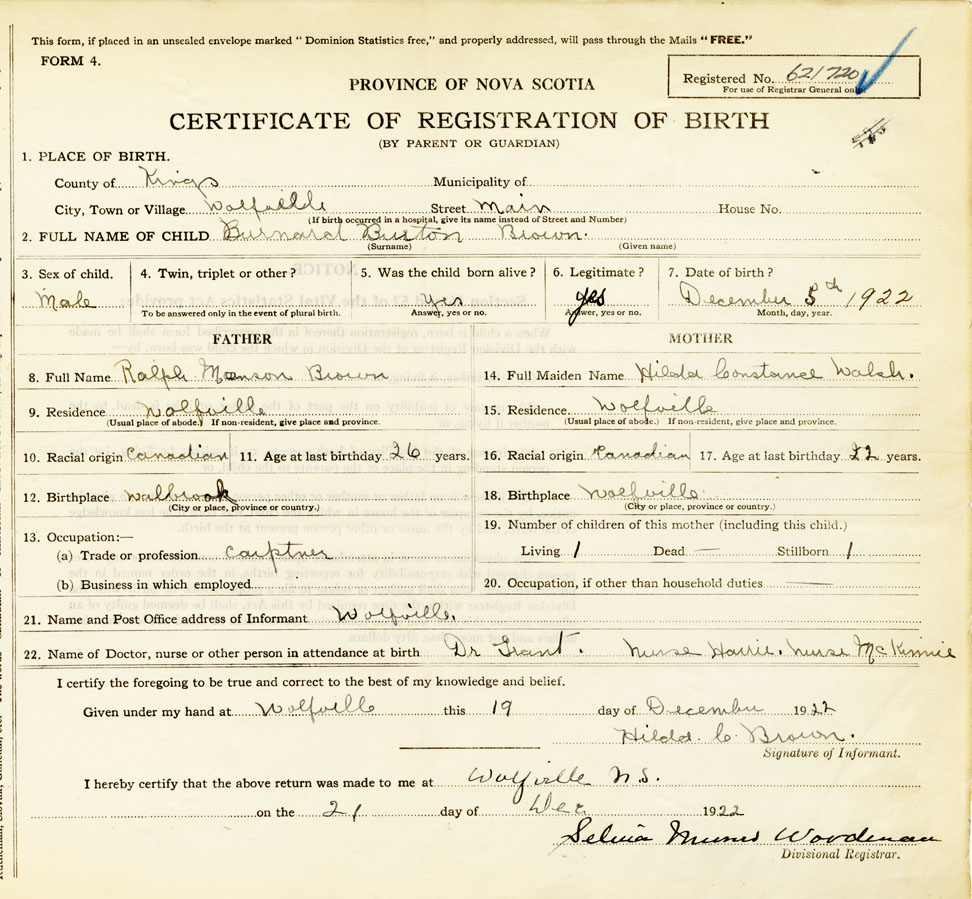 This form, if placed in an unsealed envelope marked “ Dominion Statistics free,” and properly addressed, will pass through the Mails “ FREE.”
FORM 4.
Registered No. 621720
For use of Registrar General only
PROVINCE OF NOVA SCOTIA
CERTIFICATE OF REGISTRATION OF BIRTH
(BY PARENT OR GUARDIAN)
1. PLACE OF BIRTH.
County of Kings Municipality of
City, Town or Village Wolfville Street Main House No.
(If birth occurred in a hospital, give its name instead of Street and Number)
2. FULL NAME OF CHILD Burnard Burton Brown.
(Surname) (Given name)
3. Sex of child. 4. Twin, triplet or other? 5. Was the child born alive? 6. Legitimate? 7. Date of birth?
Male Yes yes December 5th 1922
To be answered only in the event of plural birth. Answer, yes or no. Answer, yes or no. Month, day, year.
FATHER MOTHER
8. Full Name Ralph Brown 14. Full Maiden Name Hilda Constance Walsh.
9. Residence Wolfville 15. Residence. Wolfville
(Usual place of abode.) If non-resident, give place and province. (Usual place of abode.) If non-resident, give place and province.
10. Racial origin Canadian 11. Age at last birthday 26 years. 16. Racial origin Canadian 17. Age at last birthday 22 years.
12. Birthplace Walbrook 18. Birthplace Wolfville
(City or place, province or country.) (City or place, province or country.)
13. Occupation:— 19. Number of children of this mother (including this child.)
(a) Trade or profession carptner Living 1 Dead — Stillborn 1
(b) Business in which employed 20. Occupation, if other than household duties —
21. Name and Post Office address of Informant Wolfville.
22. Name of Doctor, nurse or other person in attendance at birth Dr Grant. Nurse Harrie. Nurse McKinnie
I certify the foregoing to be true and correct to the best of my knowledge and belief.
Given under my hand at Wolfville this 19 day of December 1922
Hilda C. Brown.
Signature of Informant.
I hereby certify that the above return was made to me at Wolfville N.S.
on the 21 day of Dec 1922
Woodman
Divisional Registrar.